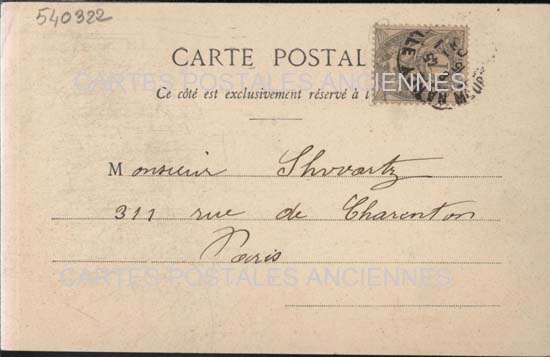 540322
CARTE POSTAL
Ce côté est exclusivement réservé à l
CARTES POSTALES ANCIENNES
Monsieur Shwartz
311 rue de Charenton
Paris
CARTES POSTALES ANCIENNES